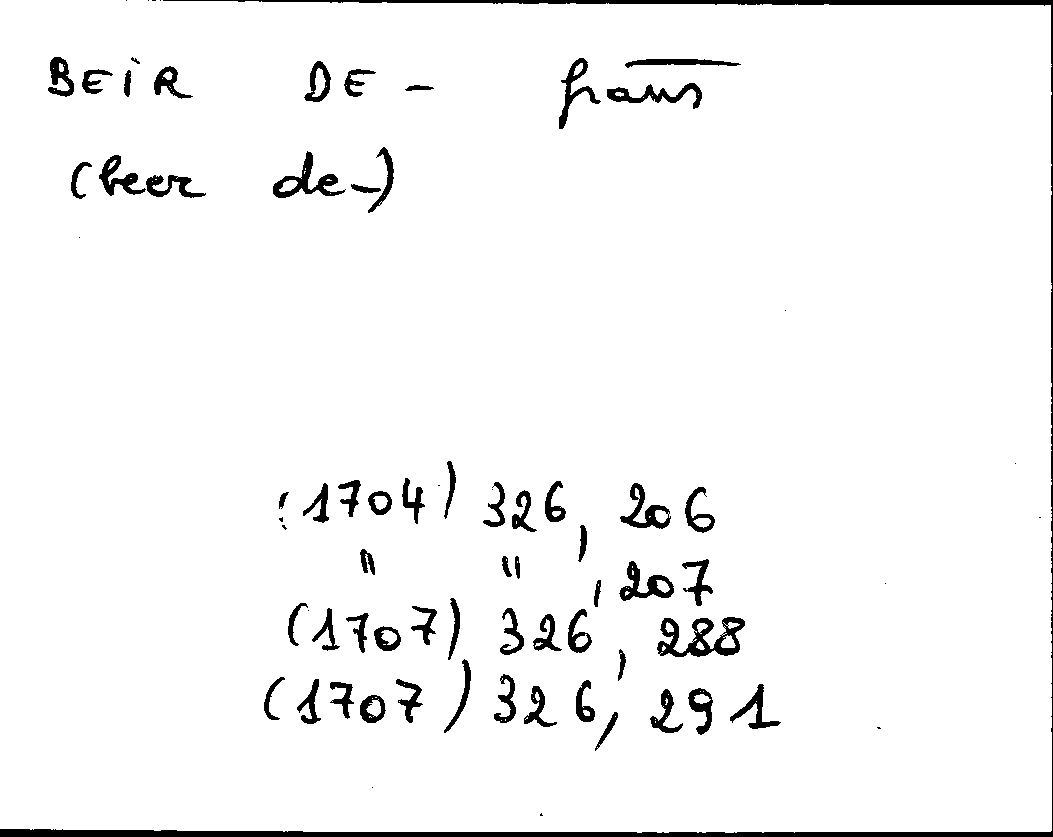 BEIR DE - frans
(beer de-)
(1704) 326, 206
" " , 207
(1707) 326, 288
(1707) 326, 291